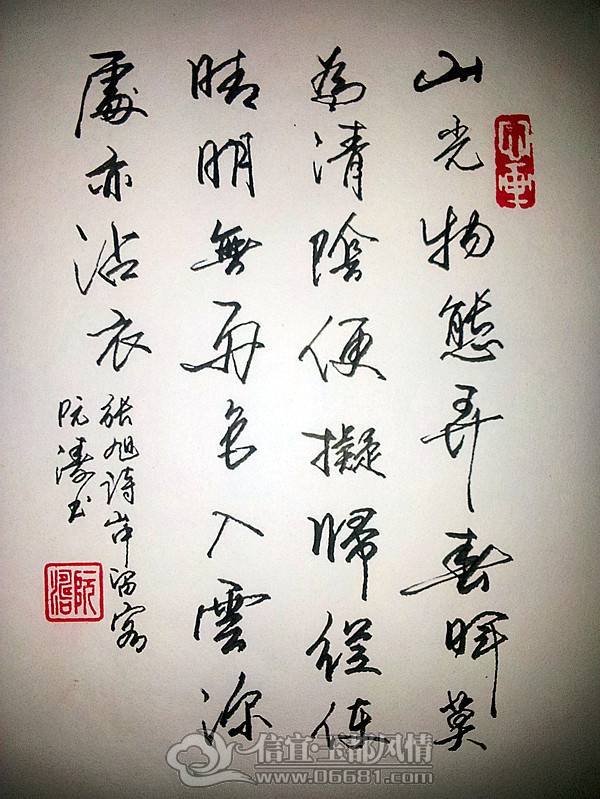 山光物態弄春暉莫
為清陰便擬歸縱使
晴明無雨色入雲深
處亦沾衣
張旭詩山中留客
阮濤书
信宜·玉都风情
www.06681.com